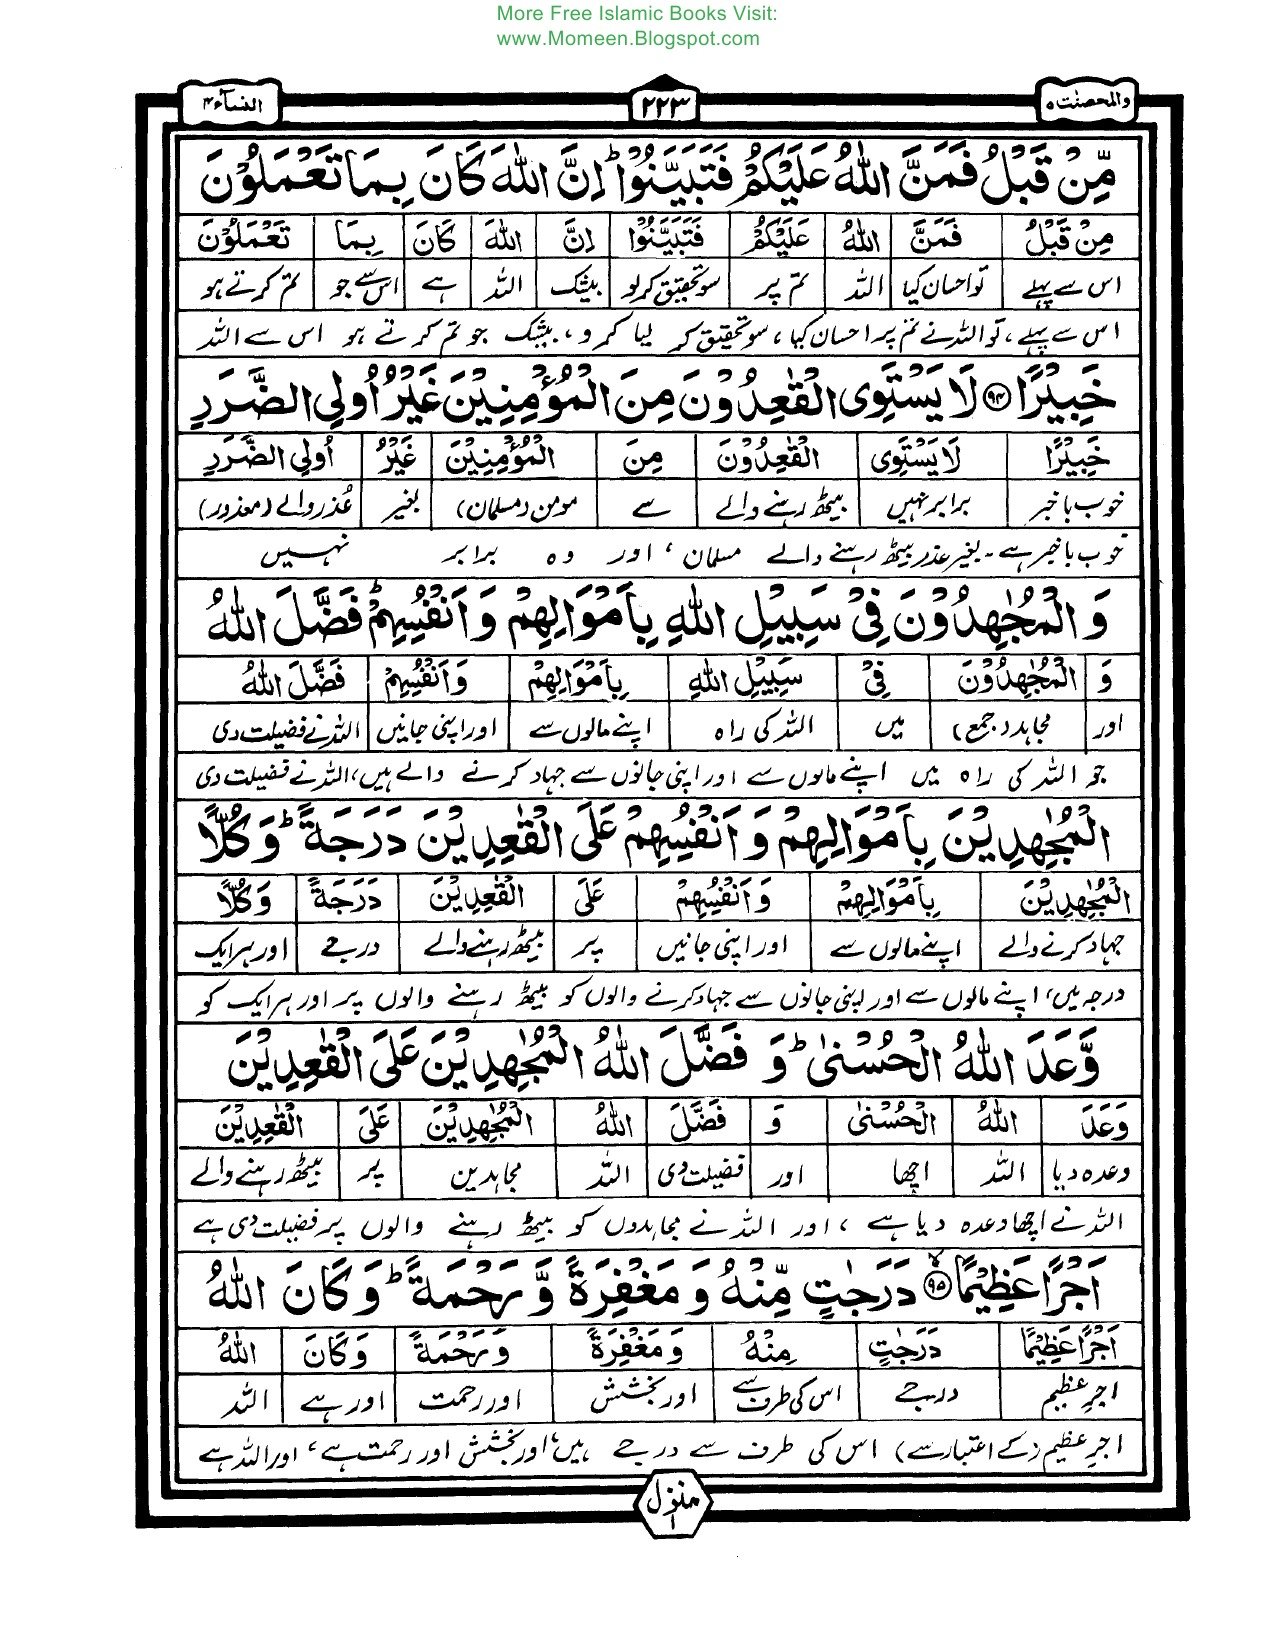 More Free Islamic Books Visit:
www.Momeen.Blogspot.com
والمحصنٰت ۵ ۲۲۳ النسآء ۴
مِّنْ قَبْلُ فَمَنَّ اللّٰهُ عَلَيْكُمْ فَتَبَيَّنُوْا ؕ اِنَّ اللّٰهَ كَانَ بِمَا تَعْمَلُوْنَ
مِنْ قَبْلُ فَمَنَّ اللّٰهُ عَلَيْكُمْ فَتَبَيَّنُوْا اِنَّ اللّٰهَ كَانَ بِمَا تَعْمَلُوْنَ
اس سے پہلے تو احسان کیا اللہ تم پر سو تحقیق کرلو بیشک اللہ ہے اس سے جو تم کرتے ہو
اس سے پہلے ، تو اللہ نے تم پر احسان کیا ، سو تحقیق کر لیا کرو ، بیشک جو تم کرتے ہو اس سے اللہ
خَبِيْرًا ۹۴ لَا يَسْتَوِى الْقٰعِدُوْنَ مِنَ الْمُؤْمِنِيْنَ غَيْرُ اُولِى الضَّرَرِ
خَبِيْرًا لَا يَسْتَوِى الْقٰعِدُوْنَ مِنَ الْمُؤْمِنِيْنَ غَيْرُ اُولِى الضَّرَرِ
خوب باخبر برابر نہیں بیٹھ رہنے والے سے مومن (مسلمان) بغیر عُذر والے (معذور)
خوب باخبر ہے ۔ بغیر عذر بیٹھ رہنے والے مسلمان ، اور وہ برابر نہیں
وَ الْمُجٰهِدُوْنَ فِىْ سَبِيْلِ اللّٰهِ بِاَمْوَالِهِمْ وَ اَنْفُسِهِمْ ؕ فَضَّلَ اللّٰهُ
وَ الْمُجٰهِدُوْنَ فِىْ سَبِيْلِ اللّٰهِ بِاَمْوَالِهِمْ وَ اَنْفُسِهِمْ فَضَّلَ اللّٰهُ
اور مجاہد (جمع) میں اللہ کی راہ اپنے مالوں سے اور اپنی جانیں اللہ نے فضیلت دی
جو اللہ کی راہ میں اپنے مالوں سے اور اپنی جانوں سے جہاد کرنے والے ہیں ، اللہ نے فضیلت دی
الْمُجٰهِدِيْنَ بِاَمْوَالِهِمْ وَ اَنْفُسِهِمْ عَلَى الْقٰعِدِيْنَ دَرَجَةً ؕ وَ كُلًّا
الْمُجٰهِدِيْنَ بِاَمْوَالِهِمْ وَ اَنْفُسِهِمْ عَلَى الْقٰعِدِيْنَ دَرَجَةً وَ كُلًّا
جہاد کرنے والے اپنے مالوں سے اور اپنی جانیں پر بیٹھ رہنے والے درجے اور ہر ایک
درجہ میں ، اپنے مالوں سے اور اپنی جانوں سے جہاد کرنے والوں کو بیٹھ رہنے والوں پر اور ہر ایک کو
وَّعَدَ اللّٰهُ الْحُسْنٰى ؕ وَ فَضَّلَ اللّٰهُ الْمُجٰهِدِيْنَ عَلَى الْقٰعِدِيْنَ
وَعَدَ اللّٰهُ الْحُسْنٰى وَ فَضَّلَ اللّٰهُ الْمُجٰهِدِيْنَ عَلَى الْقٰعِدِيْنَ
وعدہ دیا اللہ اچھا اور فضیلت دی اللہ مجاہدین پر بیٹھ رہنے والے
اللہ نے اچھا وعدہ دیا ہے ، اور اللہ نے مجاہدوں کو بیٹھ رہنے والوں پر فضیلت دی ہے
اَجْرًا عَظِيْمًا ۙ ۹۵ دَرَجٰتٍ مِّنْهُ وَ مَغْفِرَةً وَّ رَحْمَةً ؕ وَ كَانَ اللّٰهُ
اَجْرًا عَظِيْمًا دَرَجٰتٍ مِنْهُ وَ مَغْفِرَةً وَ رَحْمَةً وَ كَانَ اللّٰهُ
اجرِ عظیم درجے اس کی طرف سے اور بخشش اور رحمت اور ہے اللہ
اجرِ عظیم (کے اعتبار سے) اس کی طرف سے درجے ہیں ، اور بخشش اور رحمت ہے ، اور اللہ ہے
منزل ۱